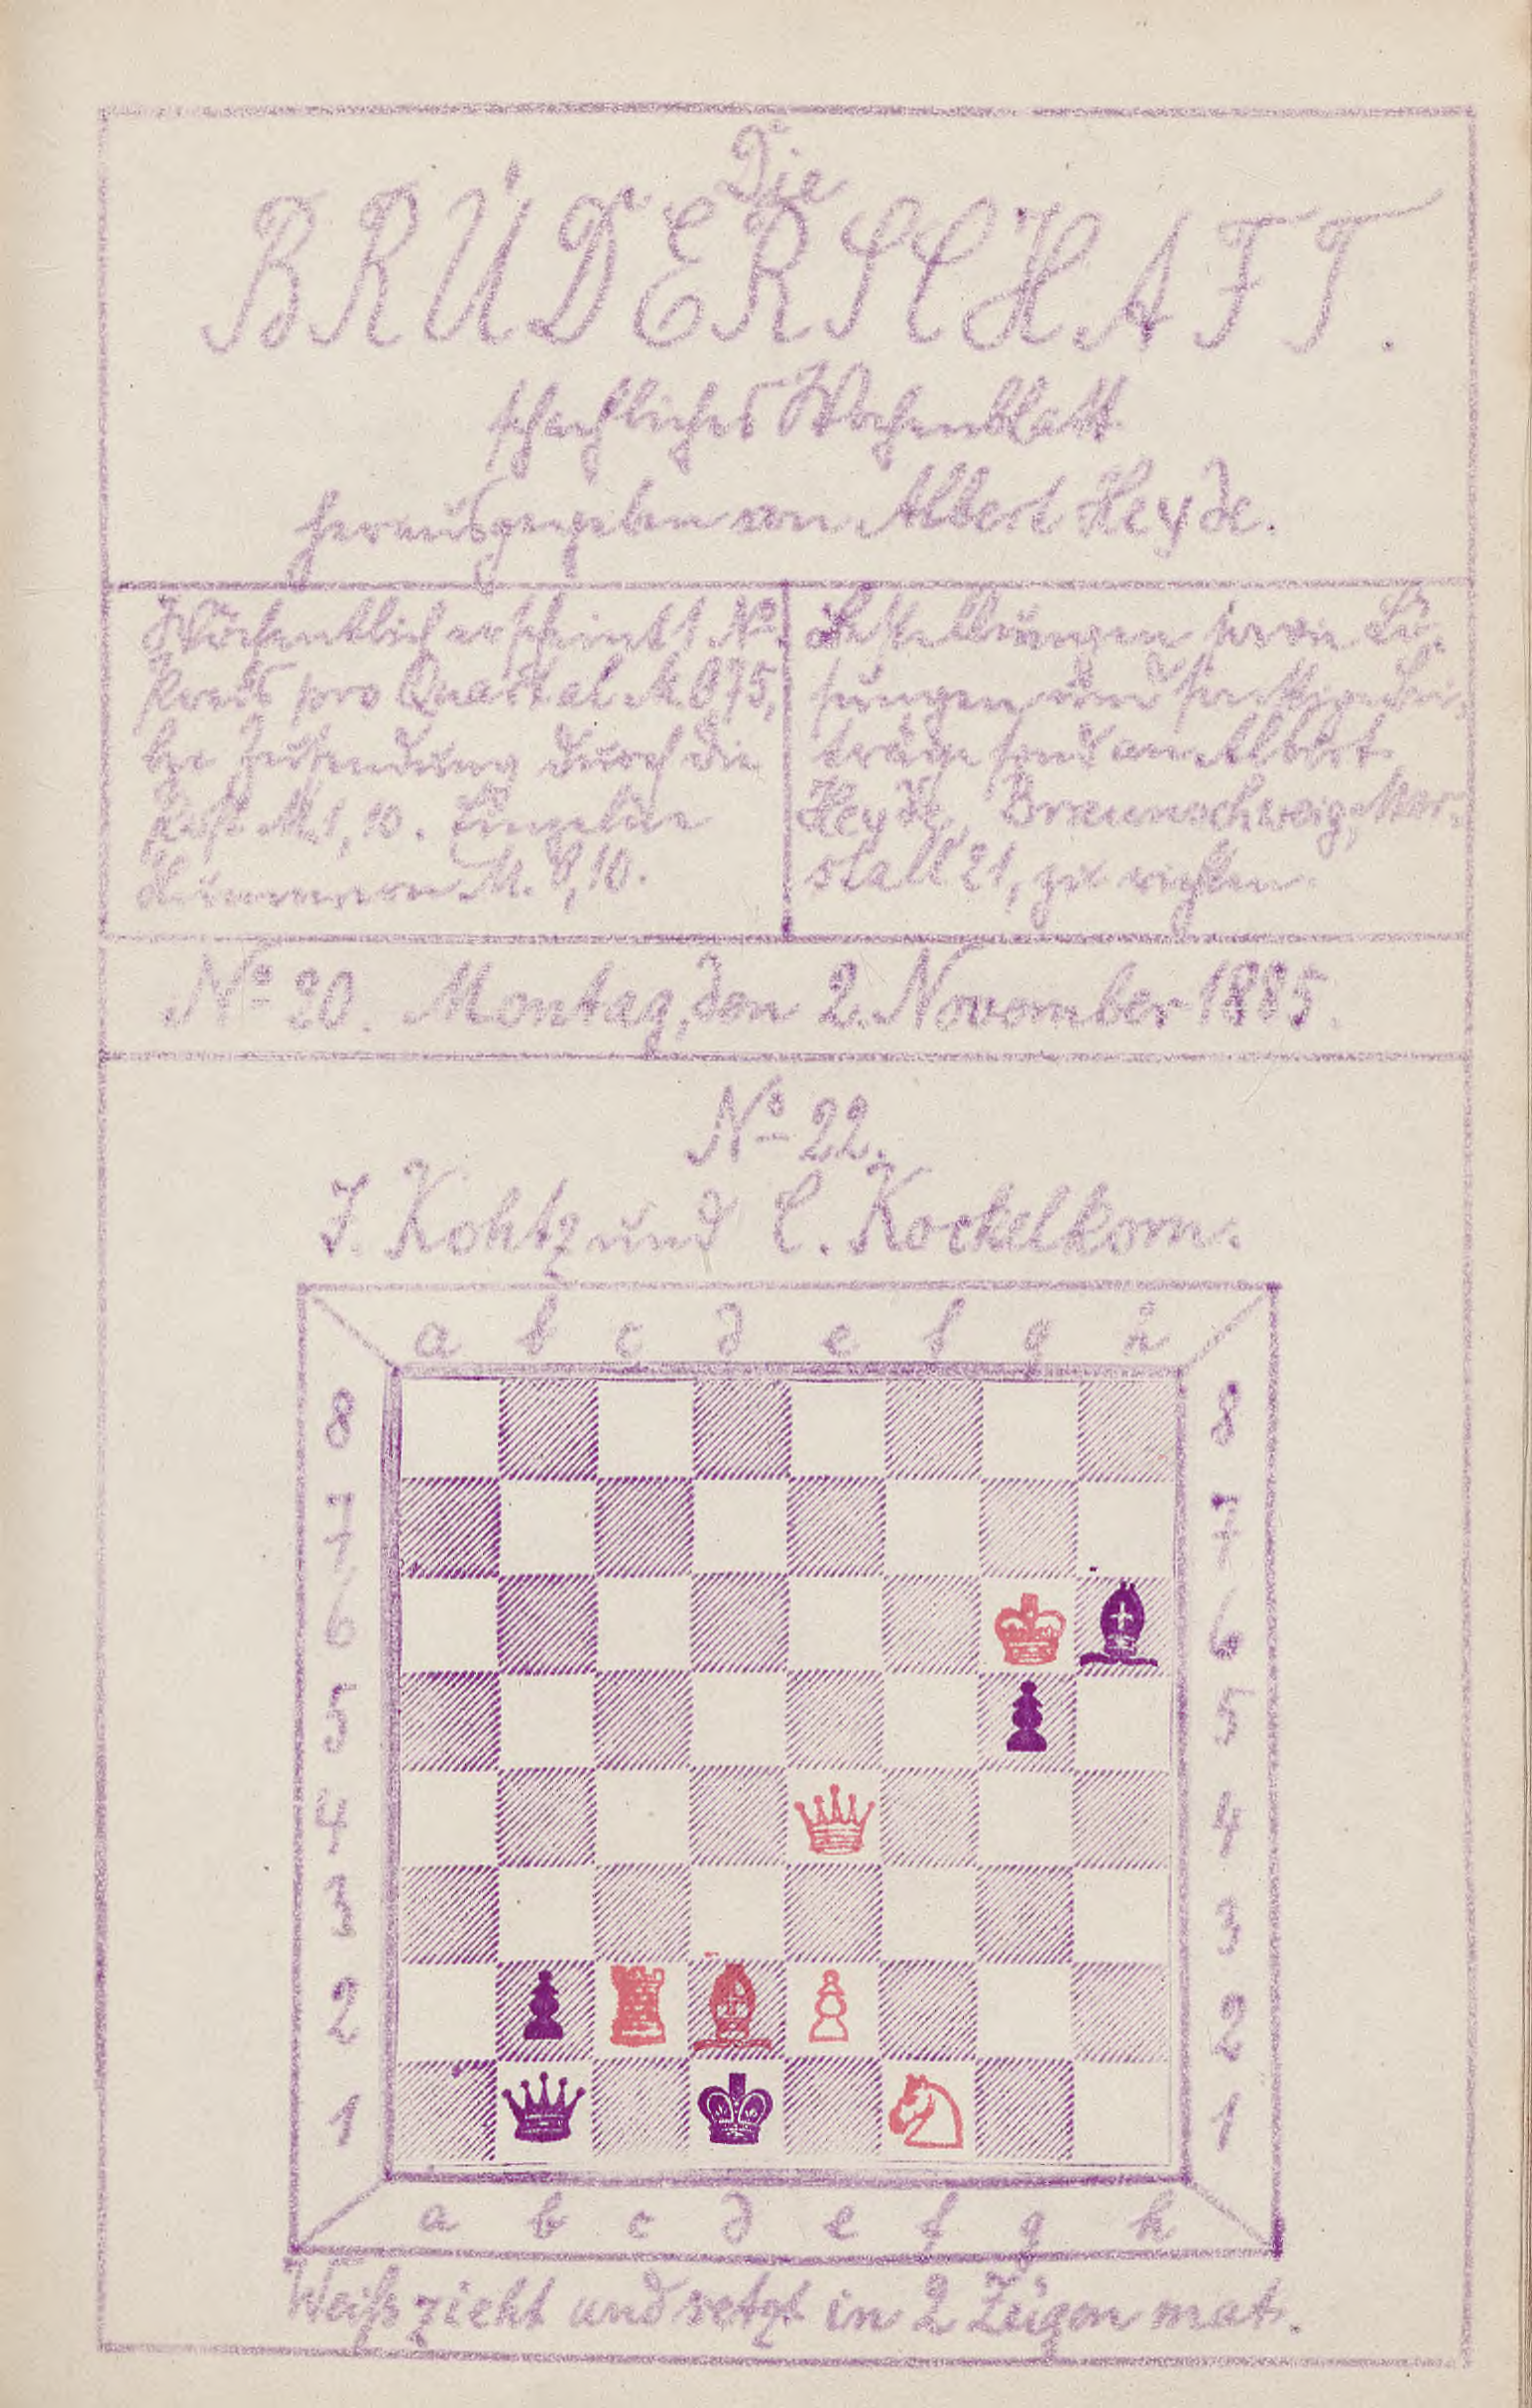 Die
BRÜDERSCHAFT.
schachliches Wochenblatt
herausgegeben von Albert Heyde.
Wöchentlich erscheint 1 No.
Preis pro Quartal M. 0,75,
bei Zusendung durch die
Post M. 1,10. Einzelne
Nummern M. 0,10.
Bestellungen sowie Lö-
sungen und sonstige Bei-
träge sind an Albert
Heyde, Braunschweig, Mar-
stall 21, zu richten.
No 20. Montag, den 2. November 1885.
No 22.
J. Kohtz und C. Kockelkorn.
a b c d e f g h
8 8
7 7
6 6
5 5
4 4
3 3
2 2
1 1
a b c d e f g h
Weiß zieht und setzt in 2 Zügen mat.